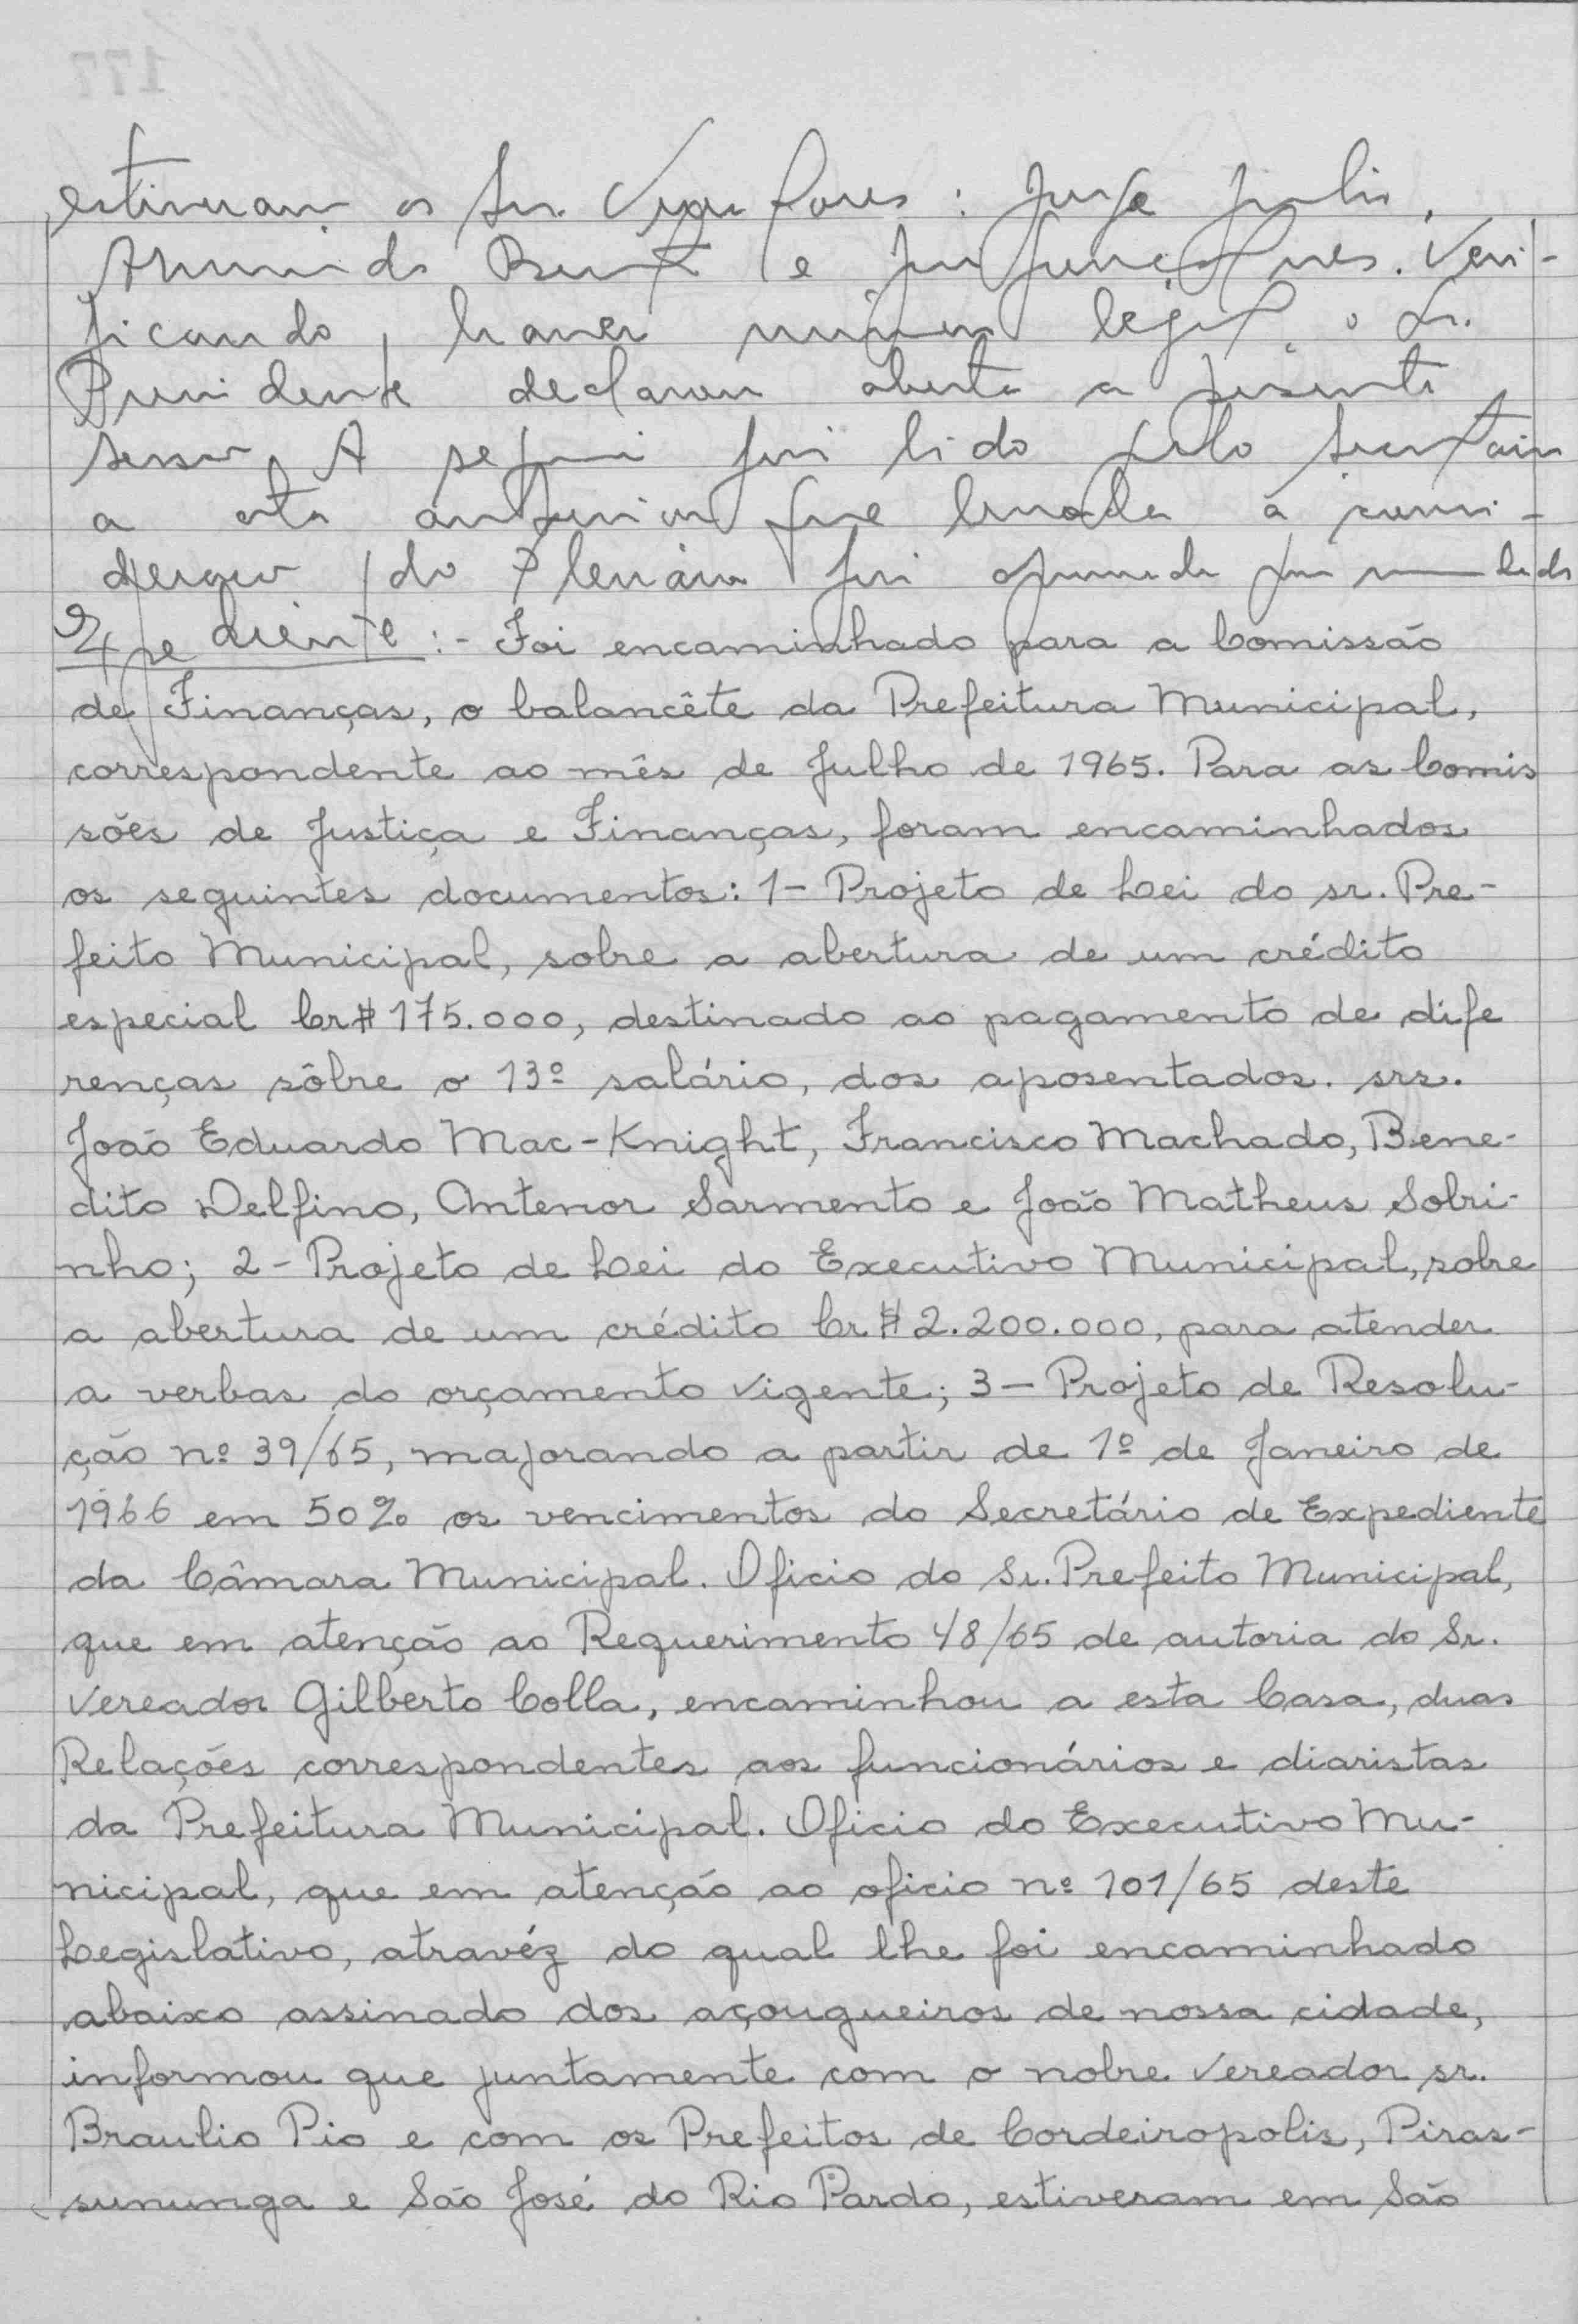 estiveram os Srs. Vereadores : Jorge Julio,
Armindo e . Veri-
ficando haver número legal, o Sr.
Presidente declarou aberta a presente
sessão. A seguir foi lido pelo Secretário
a ata anterior que levada à consi-
deração do Plenário foi aprovada por unanimidade
Expediente :- Foi encaminhado para a Comissão
de Finanças, o balancête da Prefeitura Municipal,
correspondente ao mês de Julho de 1965. Para as Comis
sões de Justiça e Finanças, foram encaminhados
os seguintes documentos: 1- Projeto de Lei do sr. Pre-
feito Municipal, sobre a abertura de um crédito
especial Cr$ 175.000, destinado ao pagamento de dife
renças sôbre o 13º salário, dos aposentados. srs.
João Eduardo Mac-Knight, Francisco Machado, Bene-
dito Delfino, Antenor Sarmento e João Matheus Sobri-
nho; 2- Projeto de Lei do Executivo Municipal, sobre
a abertura de um crédito Cr$ 2.200.000, para atender
a verbas do orçamento vigente; 3- Projeto de Resolu-
ção nº 39/65, majorando a partir de 1º de Janeiro de
1966 em 50% os vencimentos do Secretário de Expediente
da Câmara Municipal. Oficio do Sr. Prefeito Municipal,
que em atenção ao Requerimento 48/65 de autoria do Sr.
Vereador Gilberto Colla, encaminhou a esta Casa, duas
Relações correspondentes aos funcionários e diaristas
da Prefeitura Municipal. Oficio do Executivo Mu-
nicipal, que em atenção ao oficio nº 101/65 deste
Legislativo, atravéz do qual lhe foi encaminhado
abaixo assinado dos açougueiros de nossa cidade,
informou que juntamente com o nobre Vereador sr.
Braulio Pio e com os Prefeitos de Cordeiropolis, Piras-
sununga e São José do Rio Pardo, estiveram em São